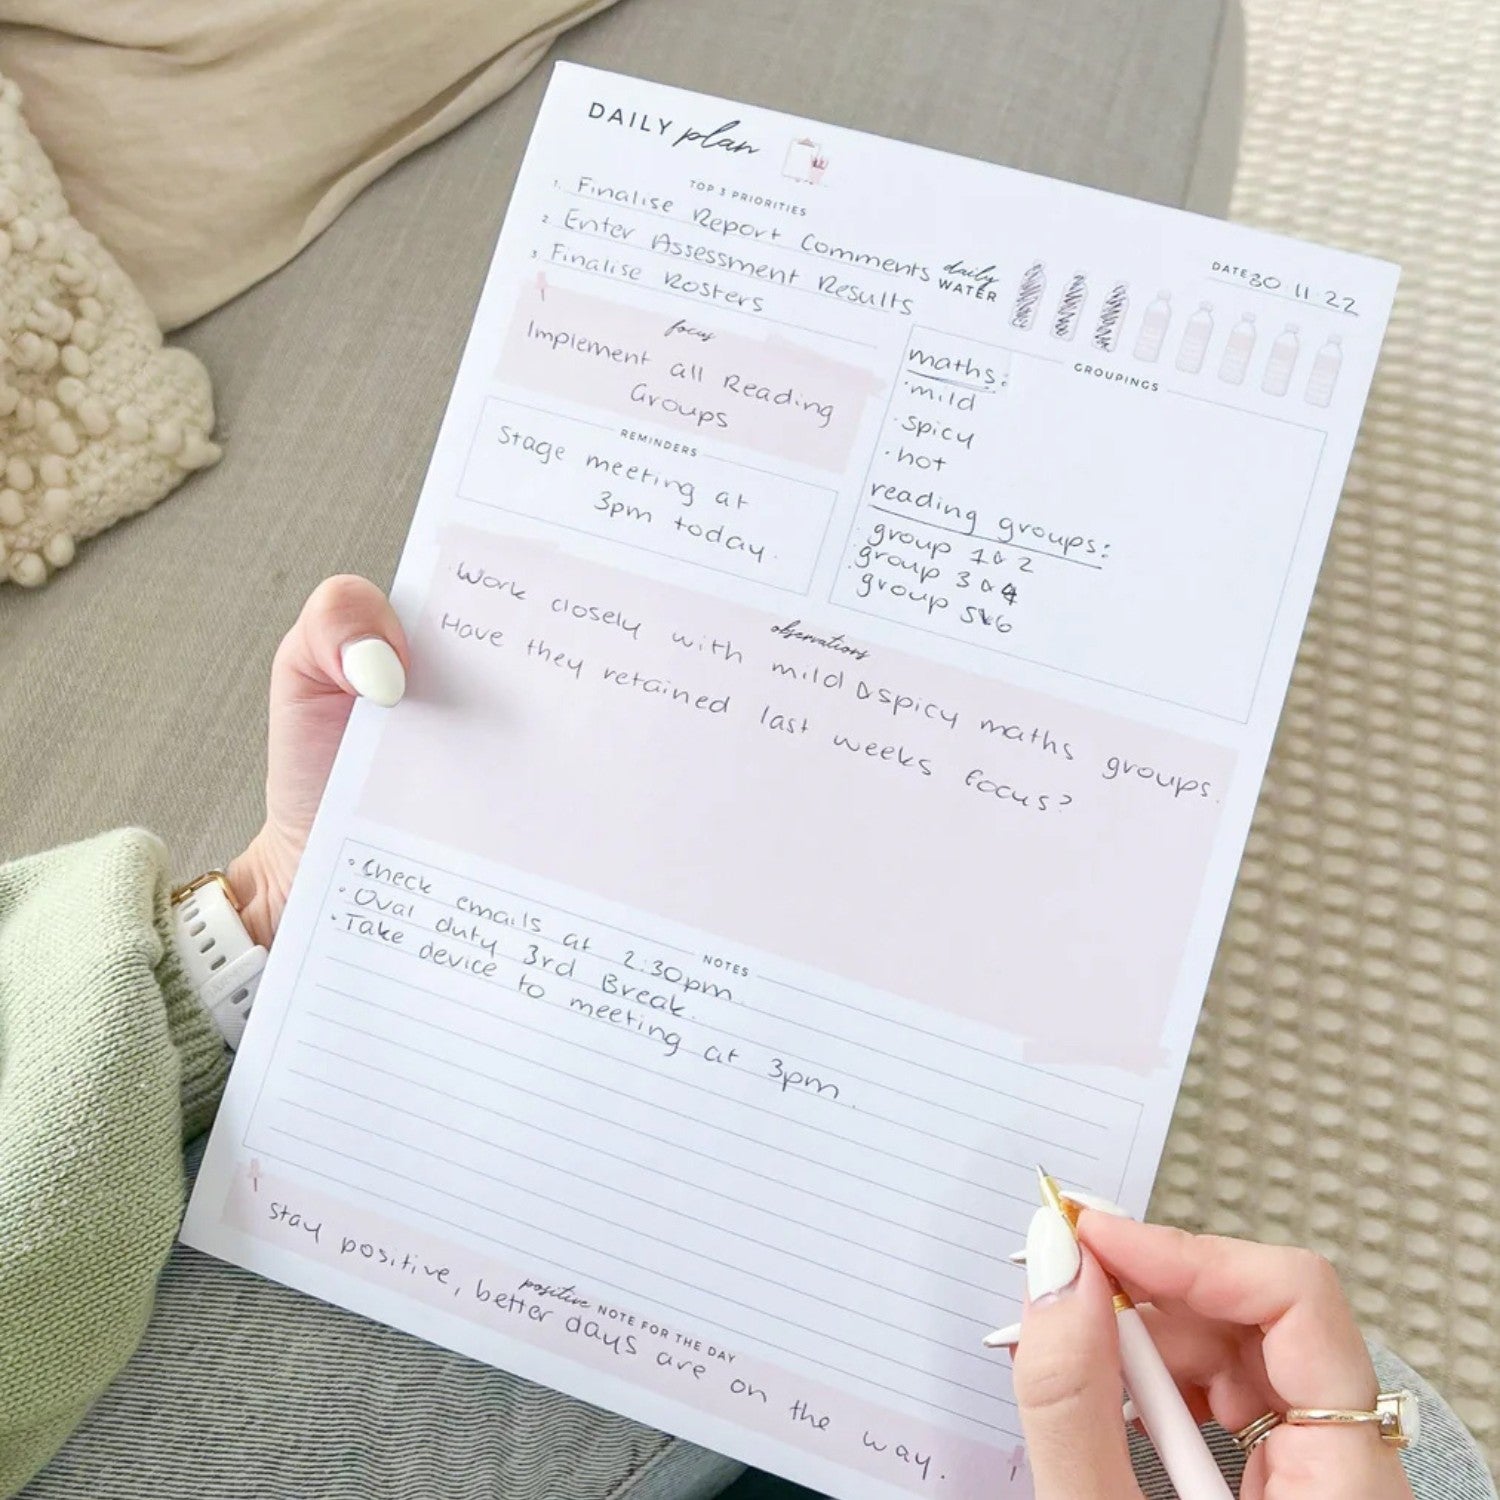 DAILY plan
TOP 3 PRIORITIES
1. Finalise Report Comments
2. Enter Assessment Results
3. Finalise Rosters
daily
WATER
DATE 30 11 22
focus
Implement all Reading
Groups
REMINDERS
Stage meeting at
3pm today.
GROUPINGS
maths:
·mild
·spicy
·hot
reading groups:
·group 1 & 2
·group 3 & 4
·group 5&6
observations
·Work closely with mild & spicy maths groups.
Have they retained last weeks focus?
NOTES
·Check emails at 2:30pm
·Oval duty 3rd Break.
·Take device to meeting at 3pm.
positive NOTE FOR THE DAY
stay positive, better days are on the way.